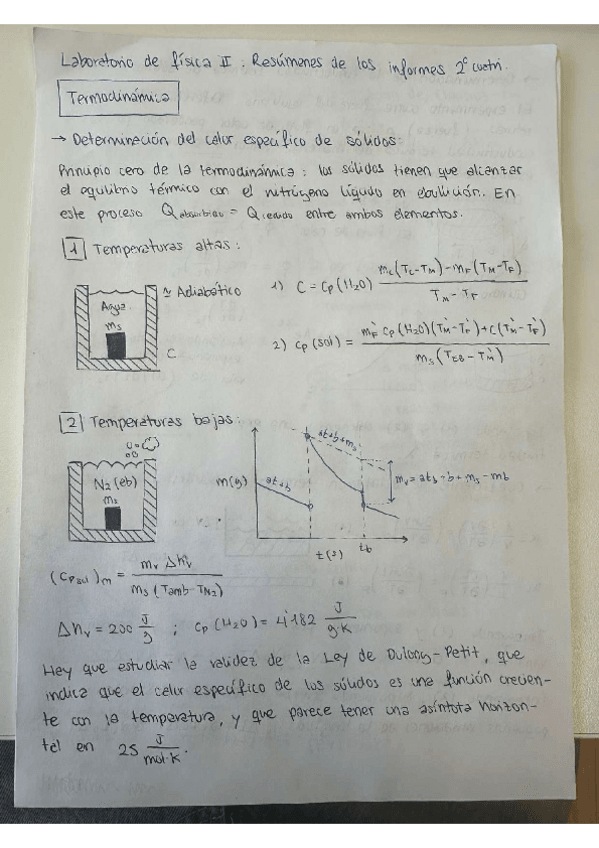 Laboratorio de física II : Resúmenes de los informes 2º cuatri.
Termodinámica
→ Determinación del calor específico de sólidos:
Principio cero de la termodinámica : los sólidos tienen que alcanzar
el equilibrio térmico con el nitrógeno líquido en ebullición. En
este proceso Q absorbido = Q cedido entre ambos elementos.
1 Temperaturas altas :
Agua
ms
≃ Adiabático
C
1) C = Cp(H2O) mc(Tc-TM)-mF(TM-TF) / TM-TF
2) Cp(sol) = m'F Cp(H2O)(T'M-T'F)+C(T'M-T'F) / ms(TEB-T'M)
2 Temperaturas bajas :
N2 (eb)
ms
m(g)
at+b
at+b+ms
mv = atb+b+ms-mb
t(s)
tb
(Cpsol)m = mv Δhv / ms (Tamb-TN2)
Δhv = 200 J/g ; Cp (H2O) = 4'182 J/g·K
Hay que estudiar la validez de la Ley de Dulong-Petit, que
indica que el calor específico de los sólidos es una función crecien-
te con la temperatura, y que parece tener una asíntota horizon-
tal en 25 J/mol·K.